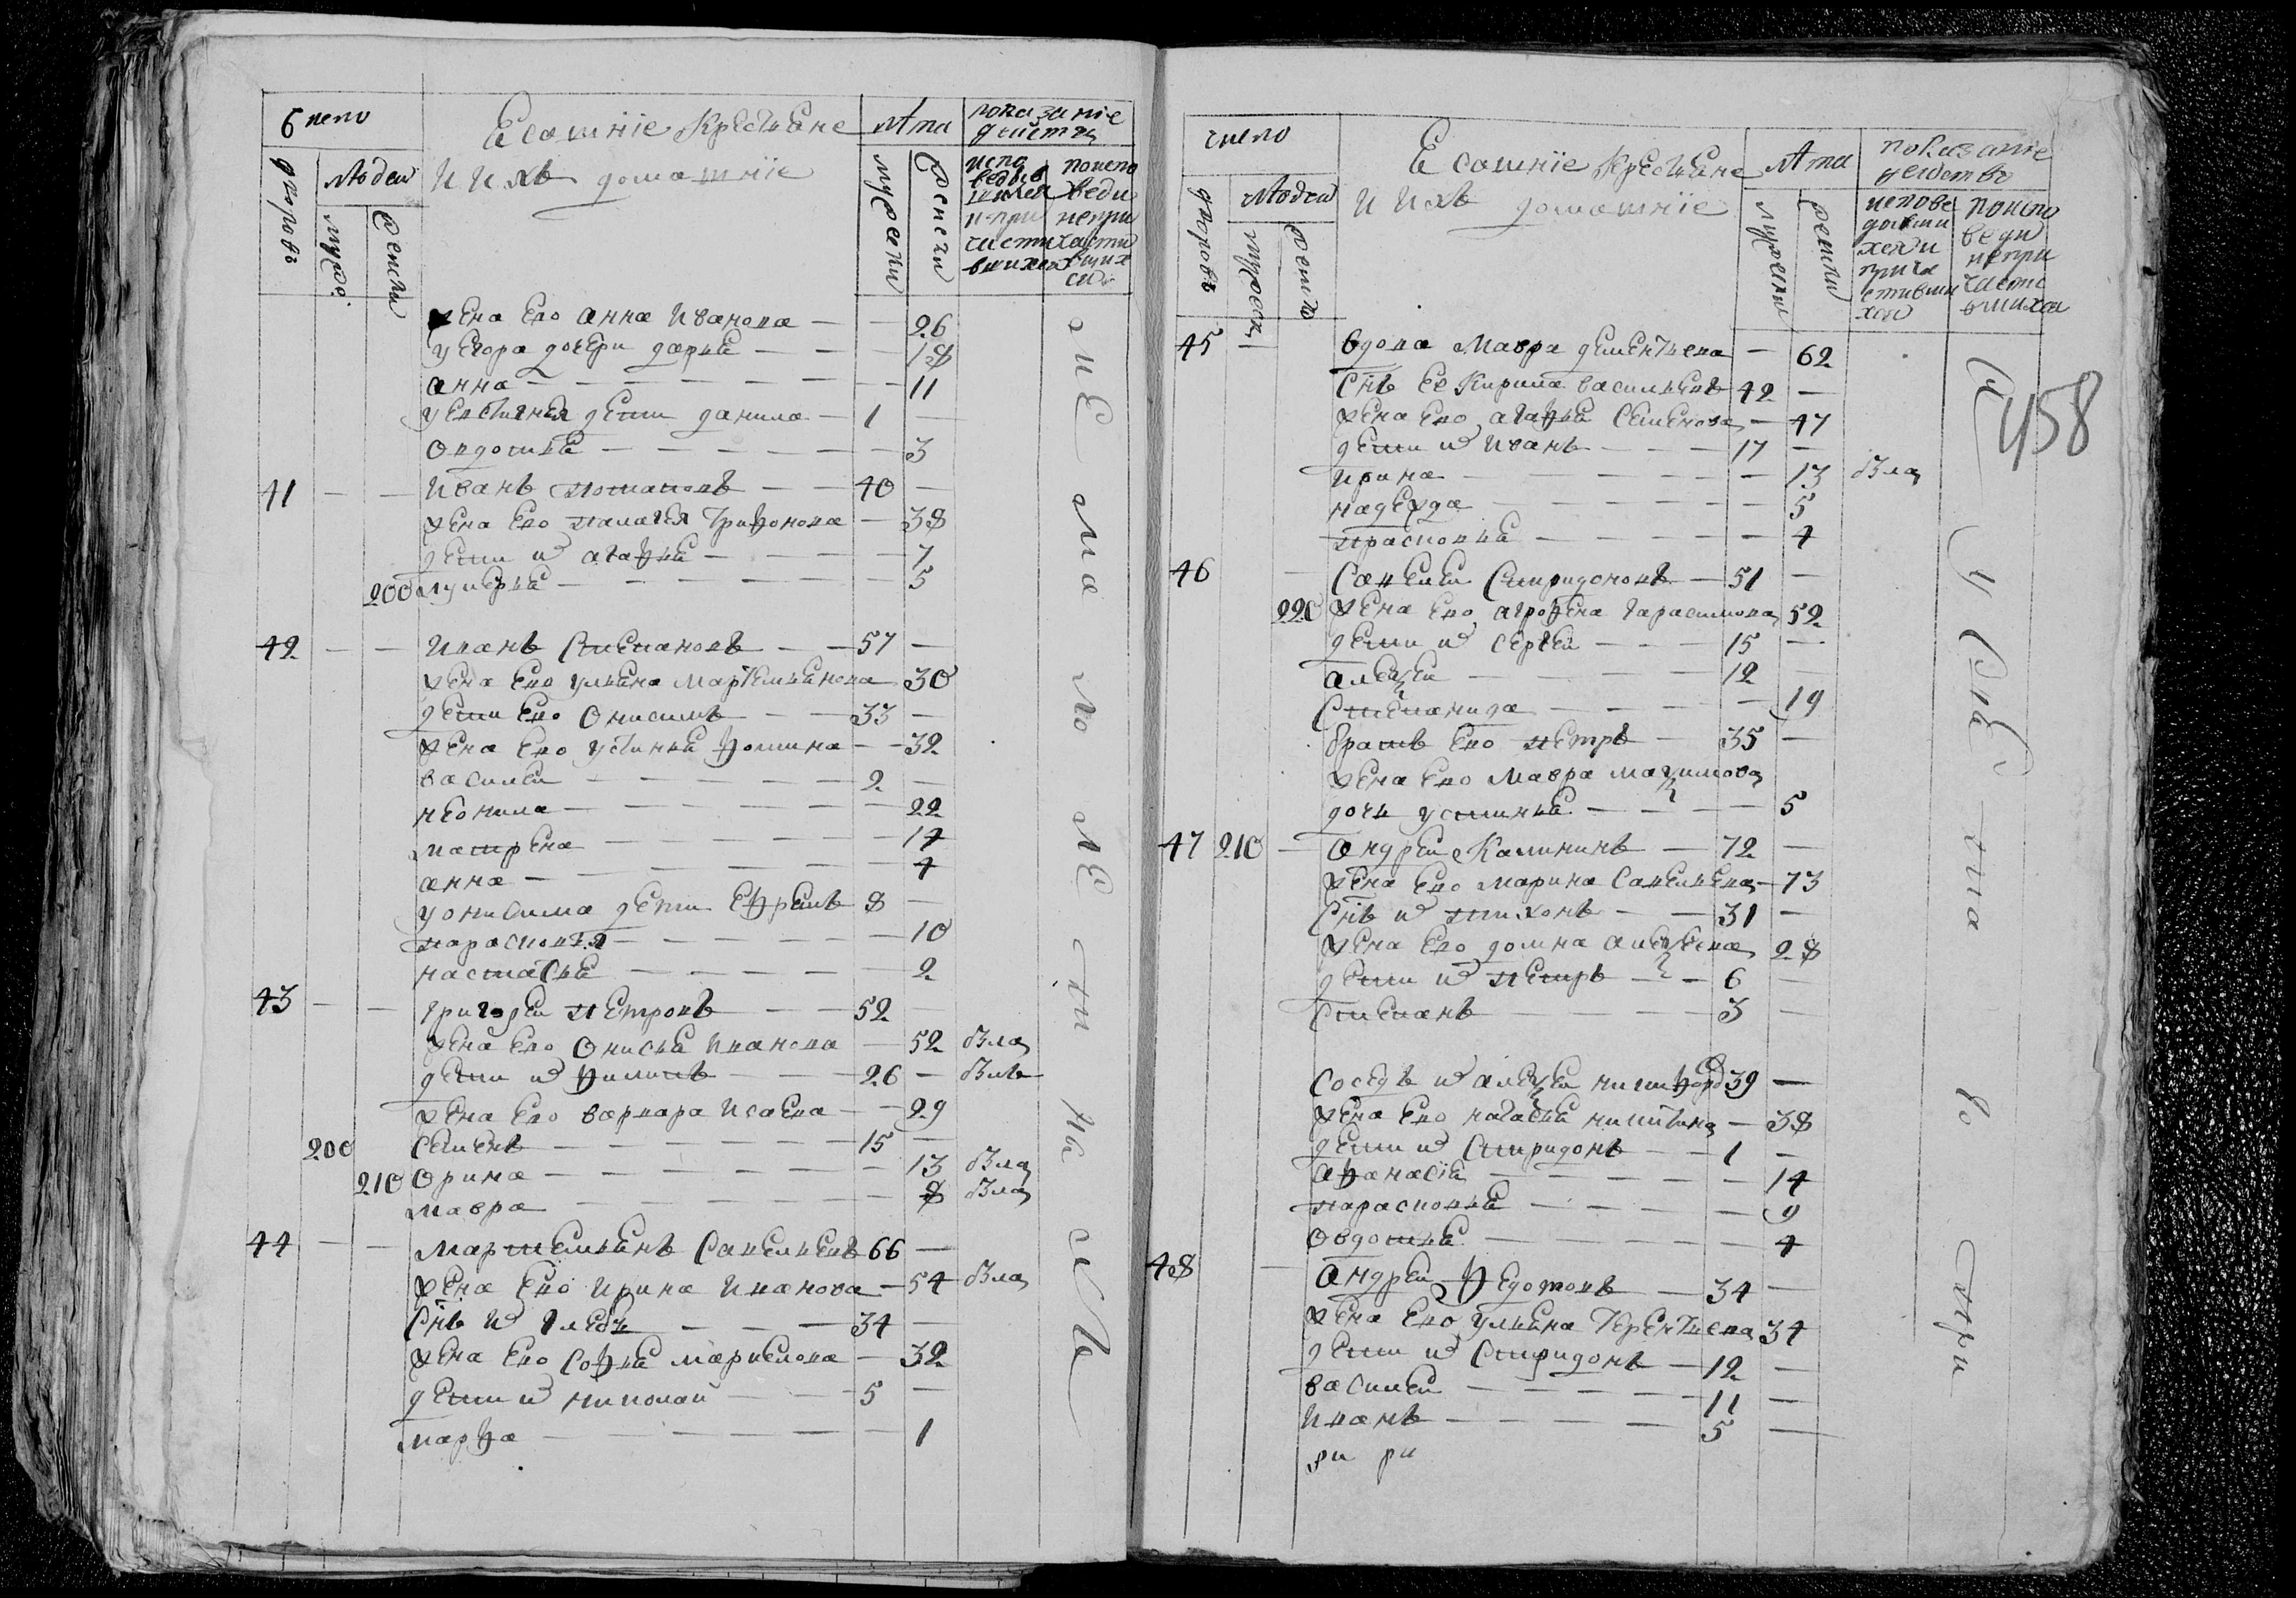 Число
Есашніе Крестьяне
и ихъ домашніе
Лѣта
показаніе
дѣйства
дворовъ
людей
мужес:
женски
мужески
женски
испо
ведыв
шихся
и при
части
вшихся
по испо
веди
непри
части
вших
ся
жена ево анна Иванова — — 26
у егора дочери дарья — — — 18
анна — — — — — — — — 11
данила — 1 —
овдотья — — — — — — 3
41 — — Иванъ потаповъ — — 40 —
жена ево палагея Трифонова — 38
дети их агафья — — — — 7
200 лукерья — — — — — — — 5
42 — — Иванъ Степановъ — — 57 —
жена ево ульяна Мартемьянова 30
дети ево Онисимъ — — 33 —
жена ево устинья фомина — — 32
василей — — — — — — 2 —
неонила — — — — — — — 22
матрена — — — — — — — 14
анна — — — — — — — 4
у онисима дети Ефремъ 8 —
парасковья — — — — — — 10
настасья — — — — — — 2
43 — — григорей петровъ — — 52 —
жена ево Онисья Иванова — 52 вла
дети их филипъ — — — 26 — влъ
жена ево варвара Исаева — — 29
200 Семенъ — — — — — — 15 —
210 Орина — — — — — — — 13 вла
мавра — — — — — — 8 вла
44 — — Мартемьянъ Савельевъ 66 —
жена ево ирина Иванова — 54 вла
Снъ их глебъ — — — 34 —
жена ево софья маркелова — 32
дети их николай — — 5 —
марфа — — — — — — — 1
за малолетст
число
Есашніе Крестьяне
и ихъ домашніе
Лѣта
показаніе
действо
дворовъ
людей
мужески
женски
мужески
женски
испове
давши
хся и
прича
стивши
хся
по испо
веди
непри
часто
вшихся
458
45 — вдова Мавра дементьева — 62
Снъ ее Кирила васильевъ 42 —
жена ево агафья Семенова — 47
дети их Иванъ — — — 17 —
ирина — — — — — — 13 вла
надежда — — — — — — 5
прасковья — — — — — — 4
46 — Савелей Спиридоновъ — 51 —
220 жена ево агрофена гарасимова 52
дети их Сергей — — — 15 —
алексей — — — — — 12 —
Степанида — — — — — 19
братъ ево петръ — 35 —
жена ево мавра максимова
дочь устинья — — — — 5
47 210 — андрей Калининъ — 72 —
жена ево марина Савельева — 73
Снъ их тихонъ — — 31 —
жена ево домна алексеева 28
дети их петръ — — 6 —
Степанъ — — — — — 3 —
Соседъ их алексей никифоро 39 —
жена ево наталья никитина — 38
дети их Спиридонъ — — 1 —
афанасія — — — — — — 14
парасковья — — — — — 9
овдотья — — — — — — 4
48 — андрей федотовъ — 34 —
жена ево ульяна Терентьева 34
дети их Спиридонъ — 12 —
василей — — — — — 11 —
Иванъ — — — — — 5 —